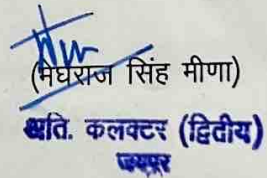 (मेघराज सिंह मीणा)
अति. कलक्टर (द्वितीय)
जयपुर